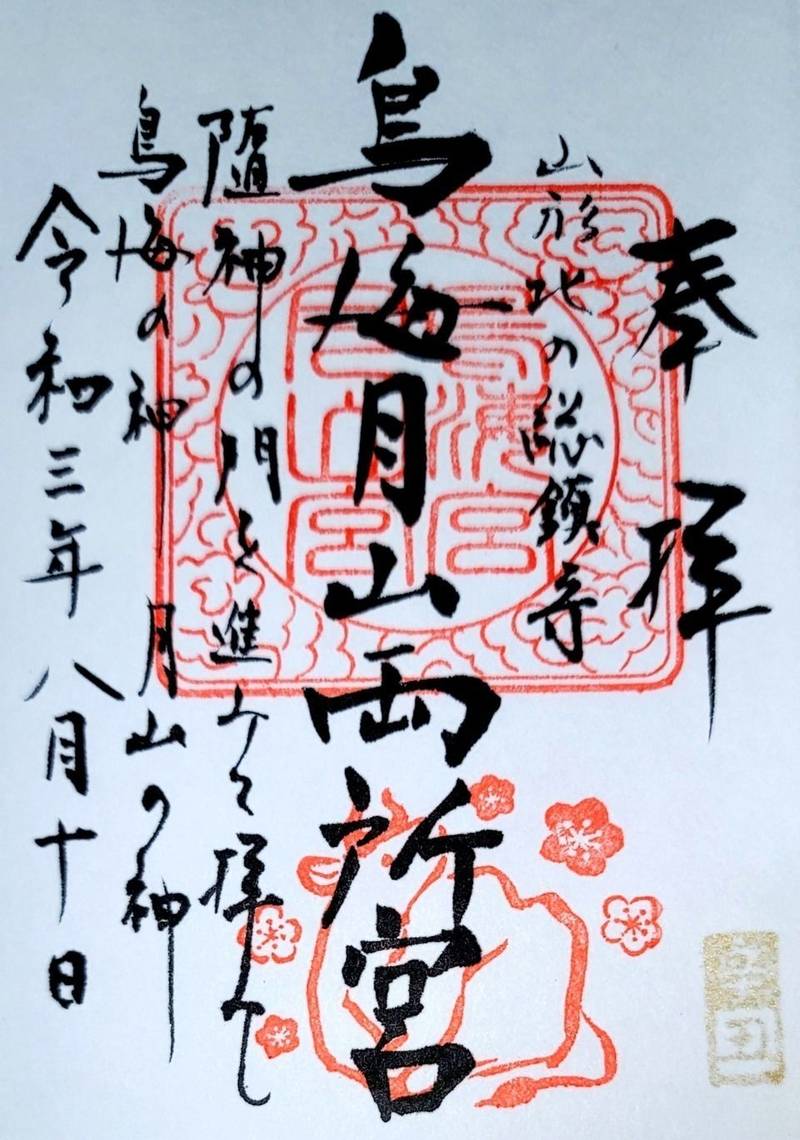 奉拝
山形北の総鎮守
鳥海月山両所宮
随神の門を進みて拝して
鳥海の神 月山の神
令和三年八月十日